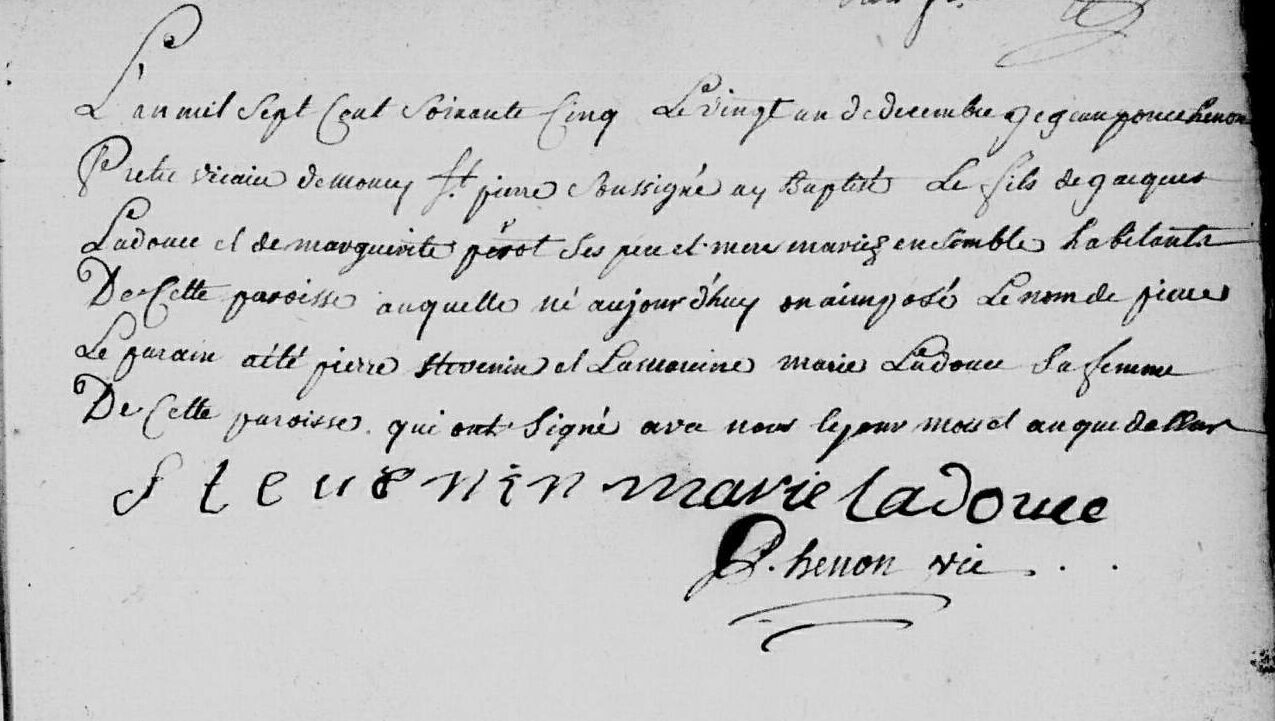 L'an mil sept Cent soixante Cinq Le vingt un de decembre je jean ponce henon
Pretre vicaire de moncy St. pierre soussigné ay Baptisé Le fils de jacques
Ladouce et de marguerite perot ses pere et mere mariez ensemble habitants
De Cette paroisse auquelle né aujourd'huy on a imposé Le nom de pierre
Le parain a été pierre stevenin et La maraine marie Ladouce sa femme
De Cette paroisse. qui ont signé avec nous le jour mois et an que dessus
stevenin marie ladouce
P. henon vic